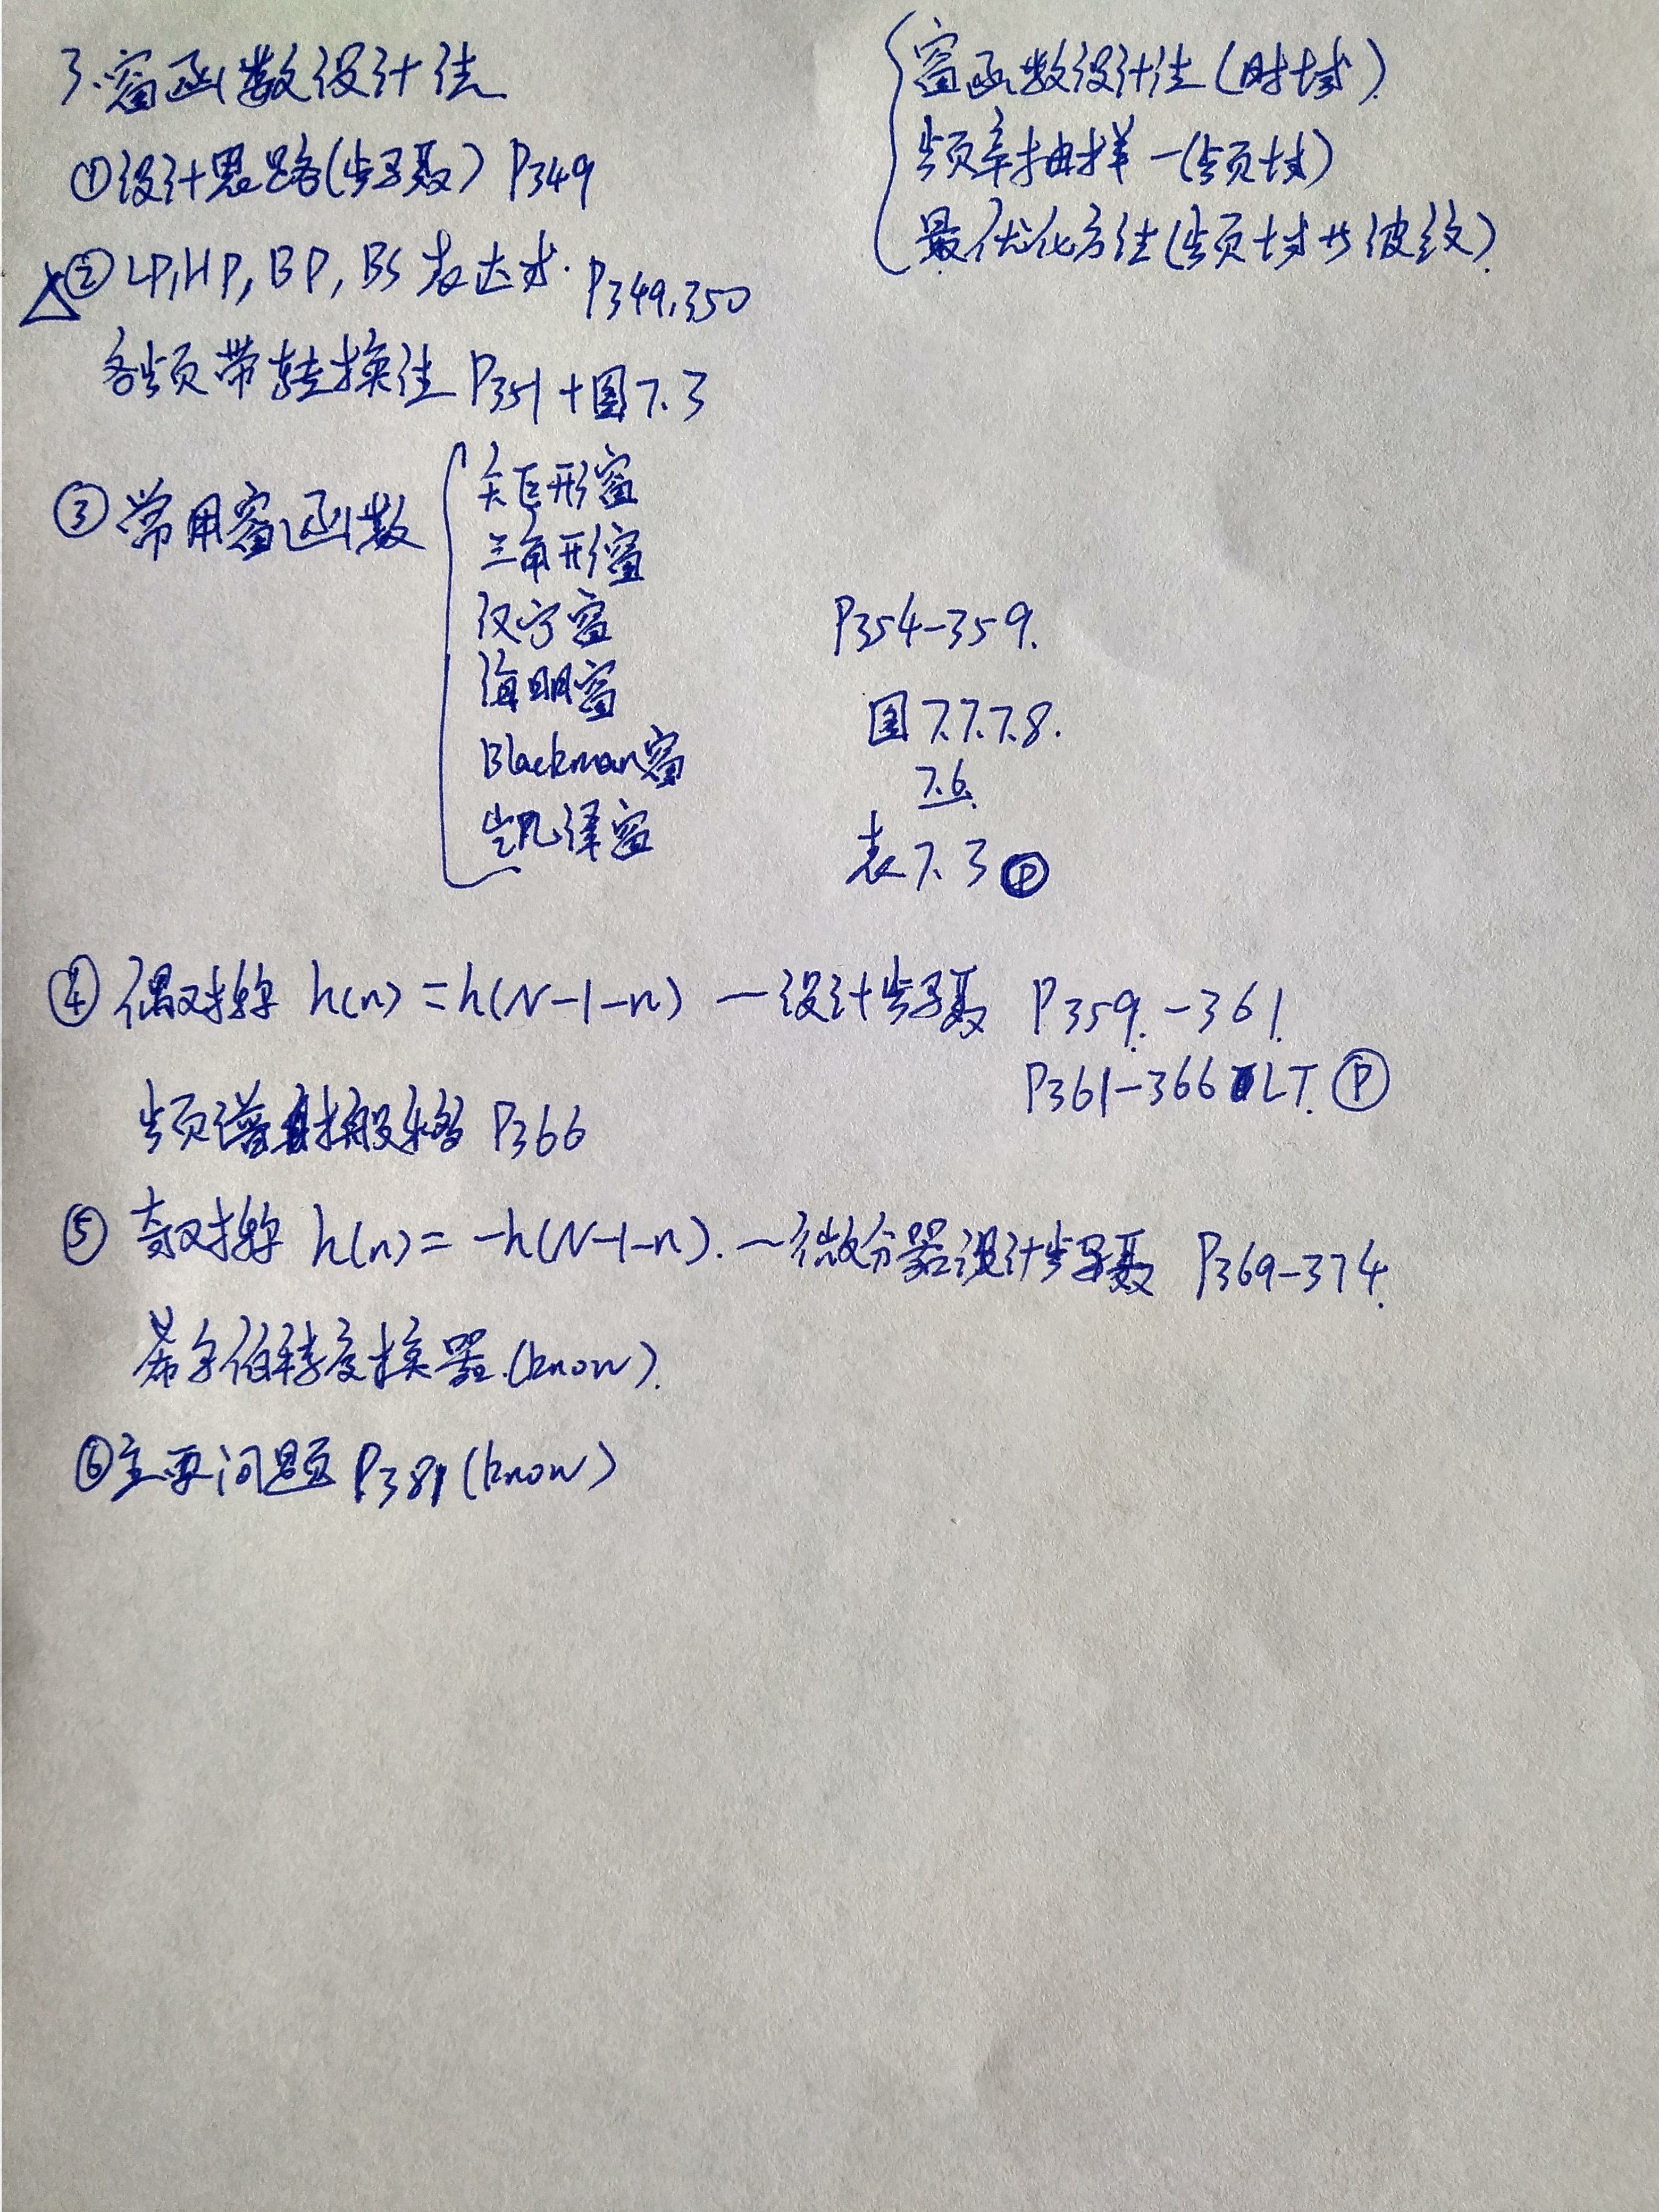 3.窗函数设计法
①设计思路(步骤) P349
△② LP,HP,BP,BS表达式. P349,350
各频带转换法 P351+图7.3
窗函数设计法(时域)
频率抽样-(频域)
最优化方法(频域等波纹)
③常用窗函数
矩形窗
三角形窗
汉宁窗
海明窗
Blackman窗
凯泽窗
P354-359.
图7.7.7.8.
7.6.
表7.3 Ⓟ
④偶对称 h(n)=h(N-1-n) -设计步骤 P359.-361.
P361-366 LT. Ⓟ
频谱搬移 P366
⑤奇对称 h(n)=-h(N-1-n).-微分器设计步骤 P369-374.
希尔伯特变换器.(know).
⑥主要问题 P381(know)